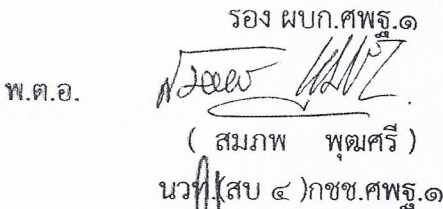 รอง ผบก.ศพฐ.๑
พ.ต.อ.
( สมภพ พุฒศรี )
นวท.(สบ ๔ )กชช.ศพฐ.๑